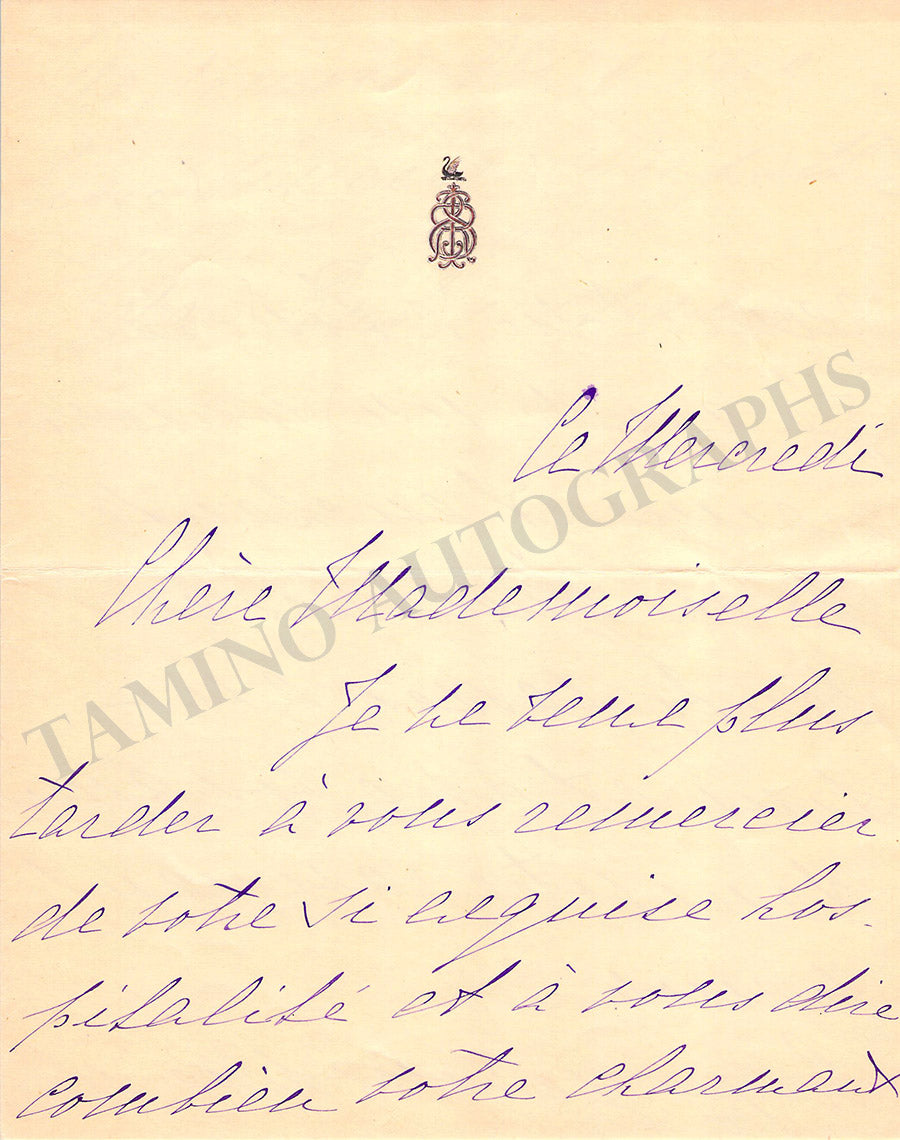 Ce Mercredi
Chère Mademoiselle
Je ne veux plus
tarder à vous remercier
de votre si exquise hos-
pitalité et à vous dire
combien votre charmant
TAMINO AUTOGRAPHS